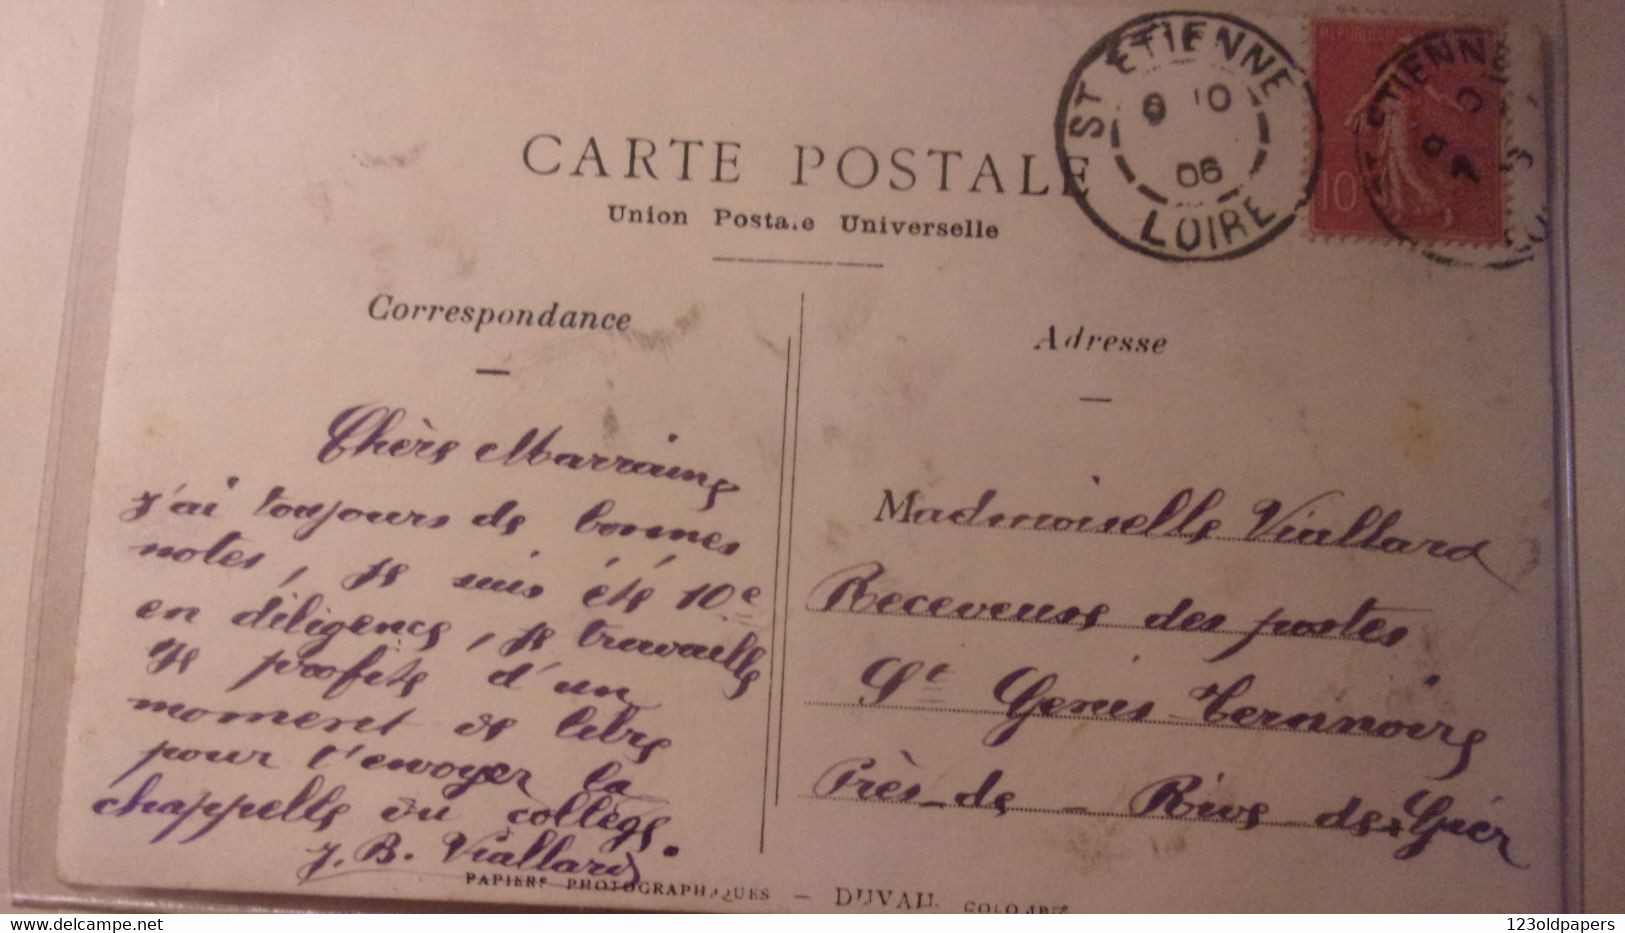 ST ETIENNE
6 10
06
LOIRE
10
CARTE POSTALE
Union Postale Universelle
Correspondance
Adresse
Chère Marraine
j'ai toujours de bonnes
notes, je suis été 10e
en diligence, je travaille
je profite d'un
moment de libre
pour t'envoyer la
chappelle du collège.
J. B. Viallard
Mademoiselle Viallard
Receveuse des postes
St Genis-Terrnoire
Près-de-Rive de Gier
PAPIERS PHOTOGRAPHIQUES - DUVAU COLOMBES
123oldpapers